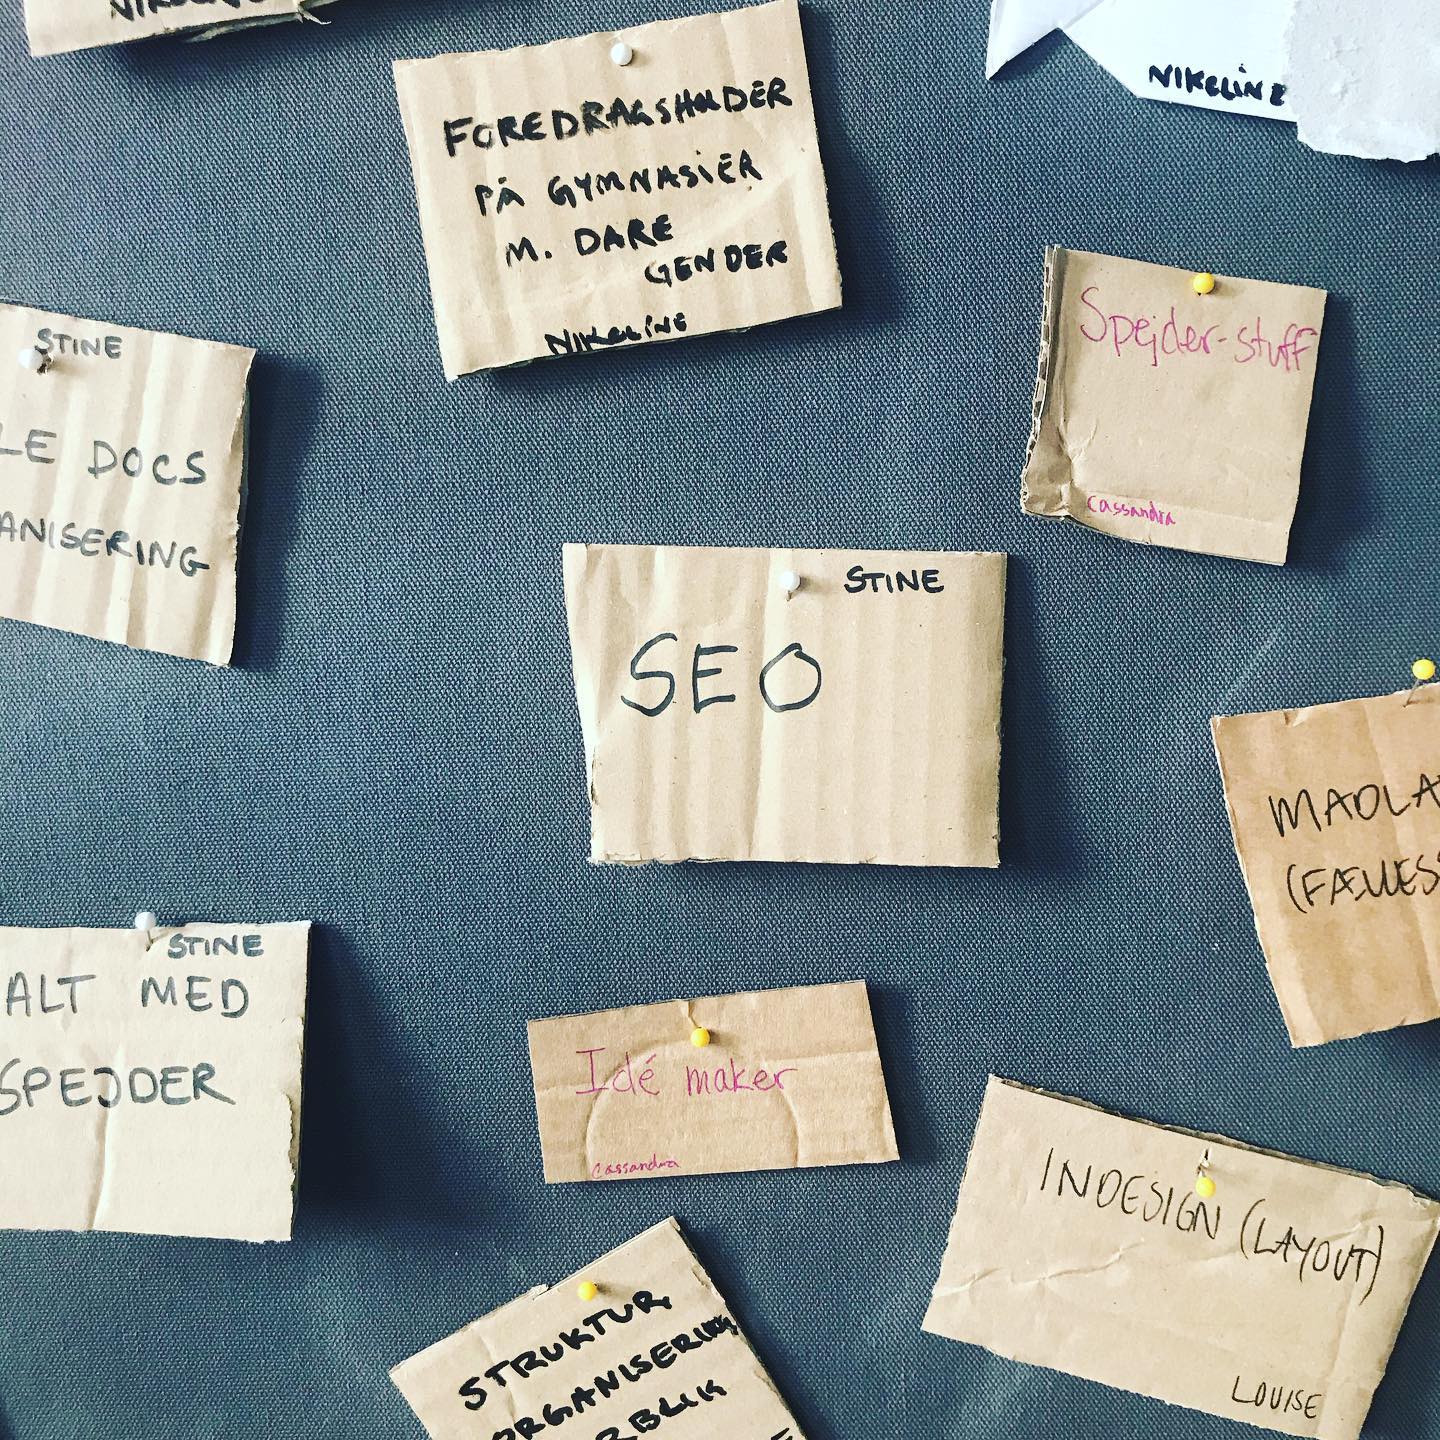 NIKELINE
FOREDRAGSHOLDER
PÅ GYMNASIER
M. DARE
GENDER
NIKELINE
NIKELINE
STINE
LE DOCS
ANISERING
Spejder-stuff
Cassandra
STINE
SEO
MADLA
(FÆLLES
STINE
ALT MED
SPEJDER
Idé maker
Cassandra
INDESIGN (LAYOUT)
LOUISE
STRUKTUR,
ORGANISERING
RBLIK